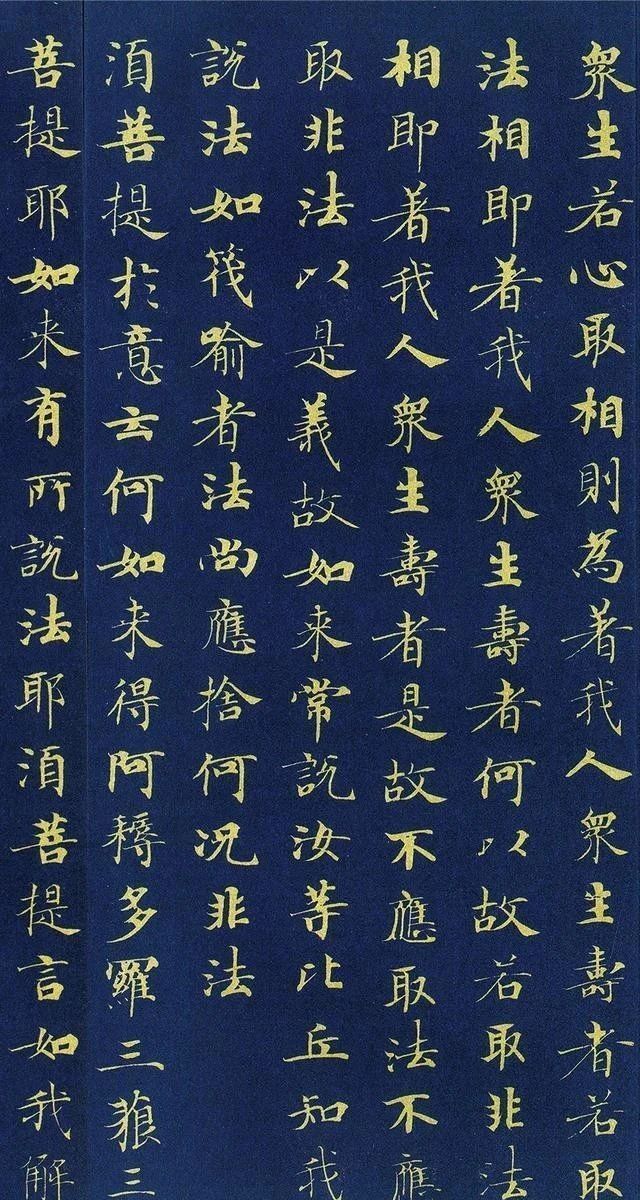 衆生若心取相則為著我人衆生壽者若取
法相即著我人衆生壽者何以故若取非法
相即著我人衆生壽者是故不應取法不應
取非法以是義故如来常說汝等比丘知我
說法如筏喻者法尚應捨何况非法
湏菩提於意云何如来得阿耨多羅三藐三
菩提耶如来有所說法耶湏菩提言如我解